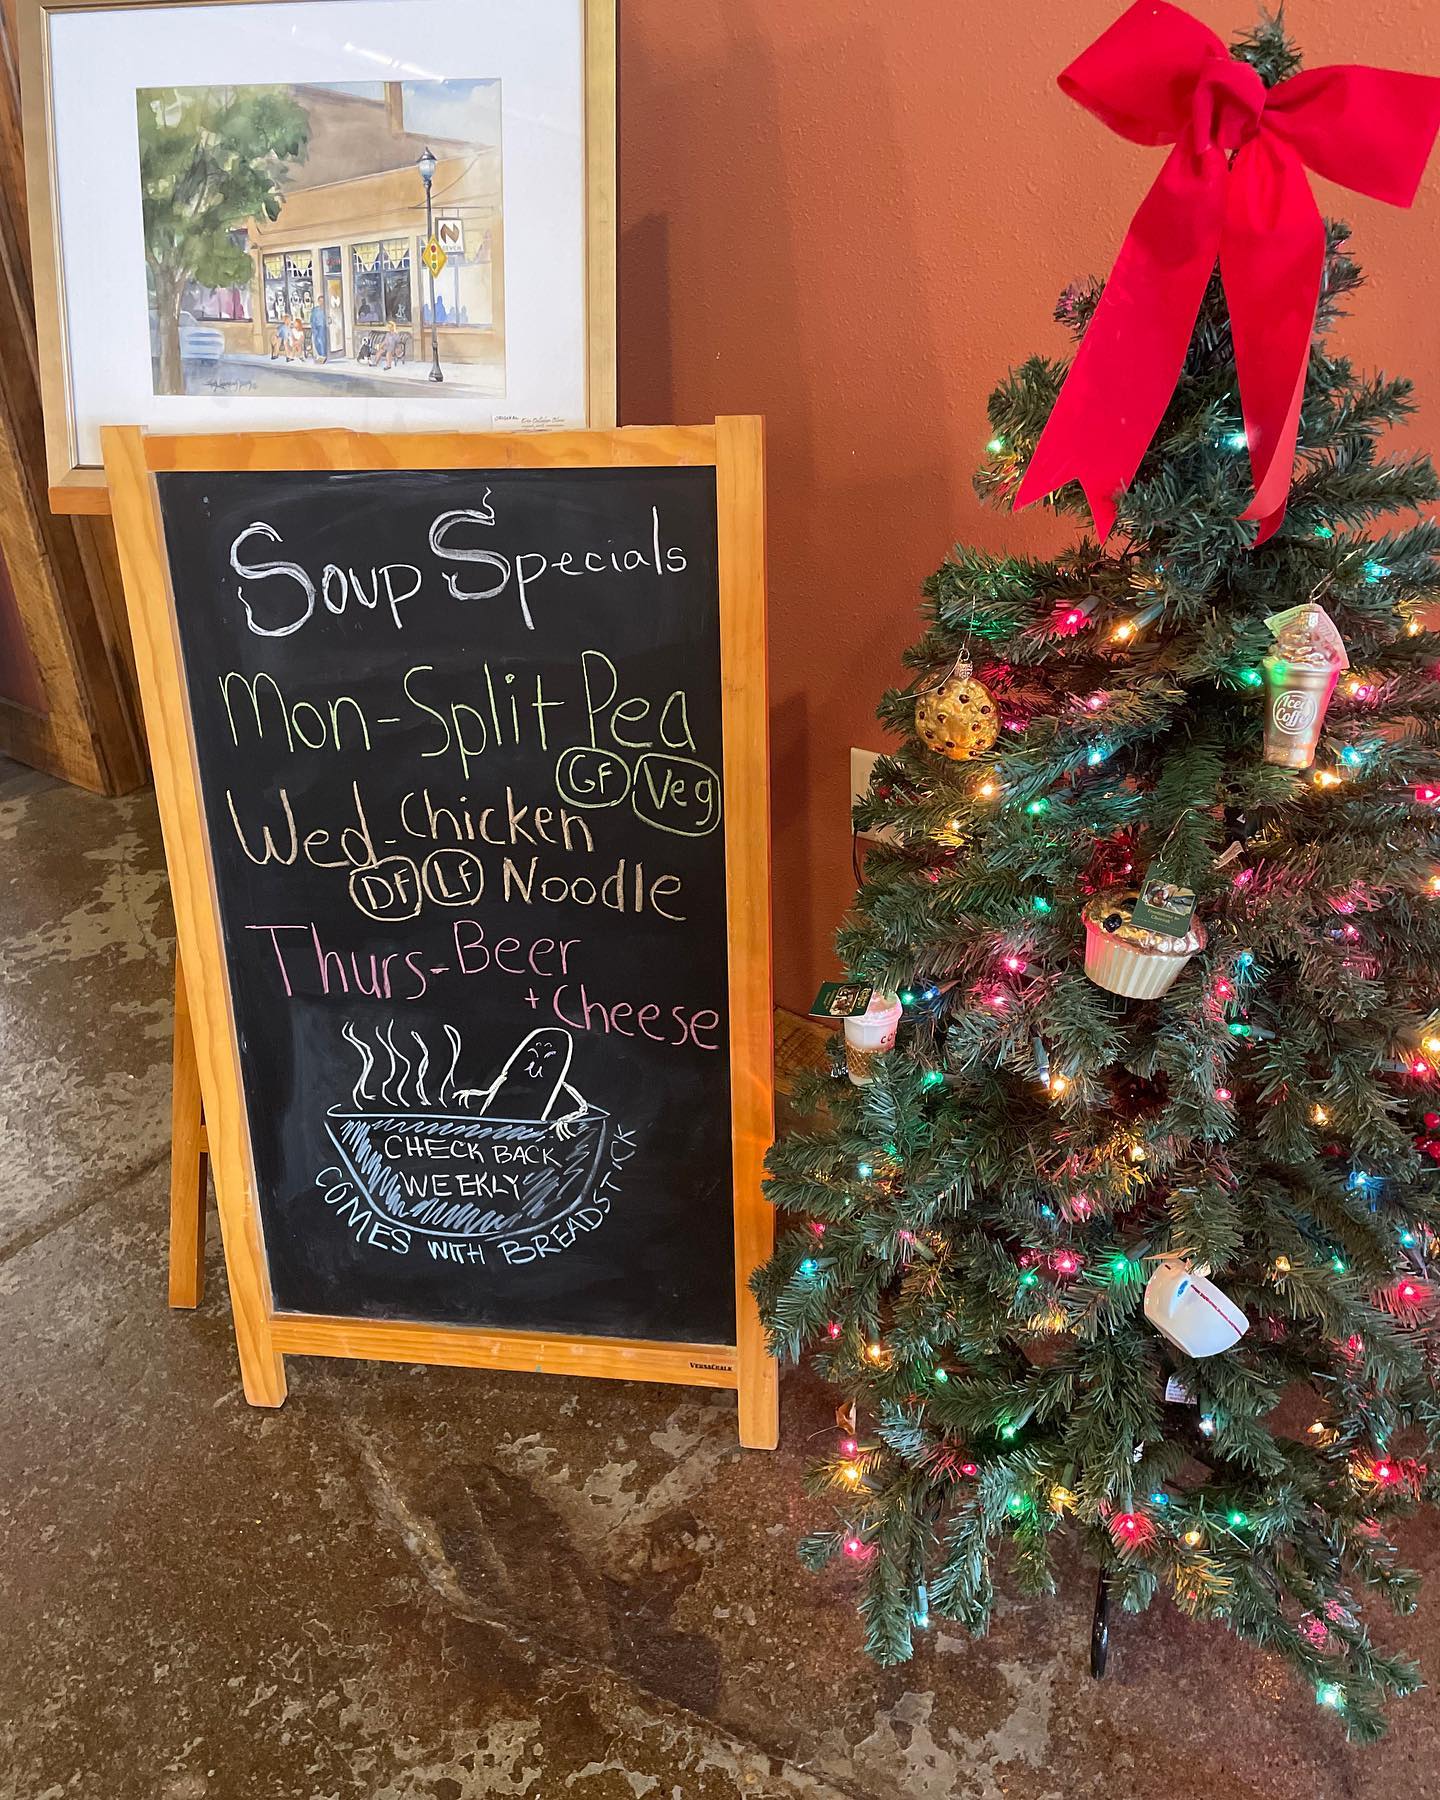 Soup Specials
Mon-Split Pea
GF Veg
Wed-Chicken
DF LF Noodle
Thurs-Beer
+ Cheese
CHECK BACK
WEEKLY
COMES WITH BREADSTICK
VERSACHALK
ORIGINAL
Iced
Coffee